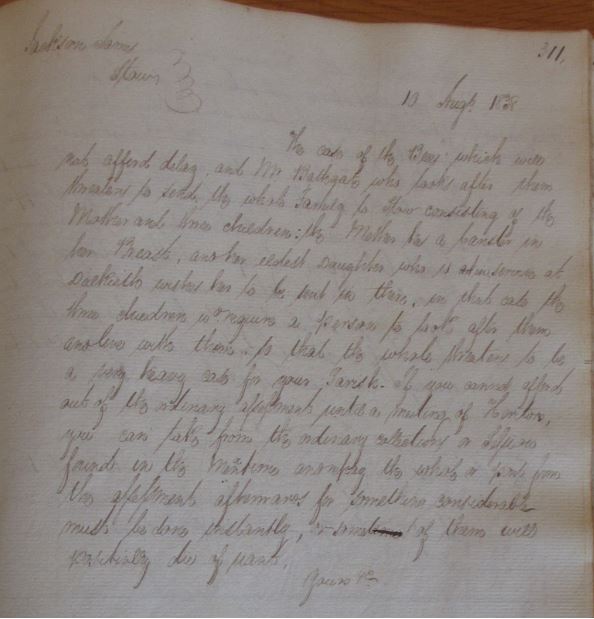 Jackson James
Stow
311.
10 Augt. 1838
The case of the Bees which will
not afford delay, and Mr Bathgate who looks after them
threatens to send the whole Family to Stow consisting of the
Mother and three children: the Mother has a Cancer in
her Breast, and her eldest Daughter who is at service at
Dalkeith wishes her to be sent in there, in that case the
three children wd. require a person to look after them
and live with them, so that the whole threatens to be
a very heavy case for your Parish. If you cannot afford
out of the ordinary assessment until a meeting of Heritors,
you can take from the ordinary collections or
funds in the meantime and repay the whole or part from
the assessment afterwards for something considerable
must be done instantly, or some of them will
positively die of want.
Yours &c